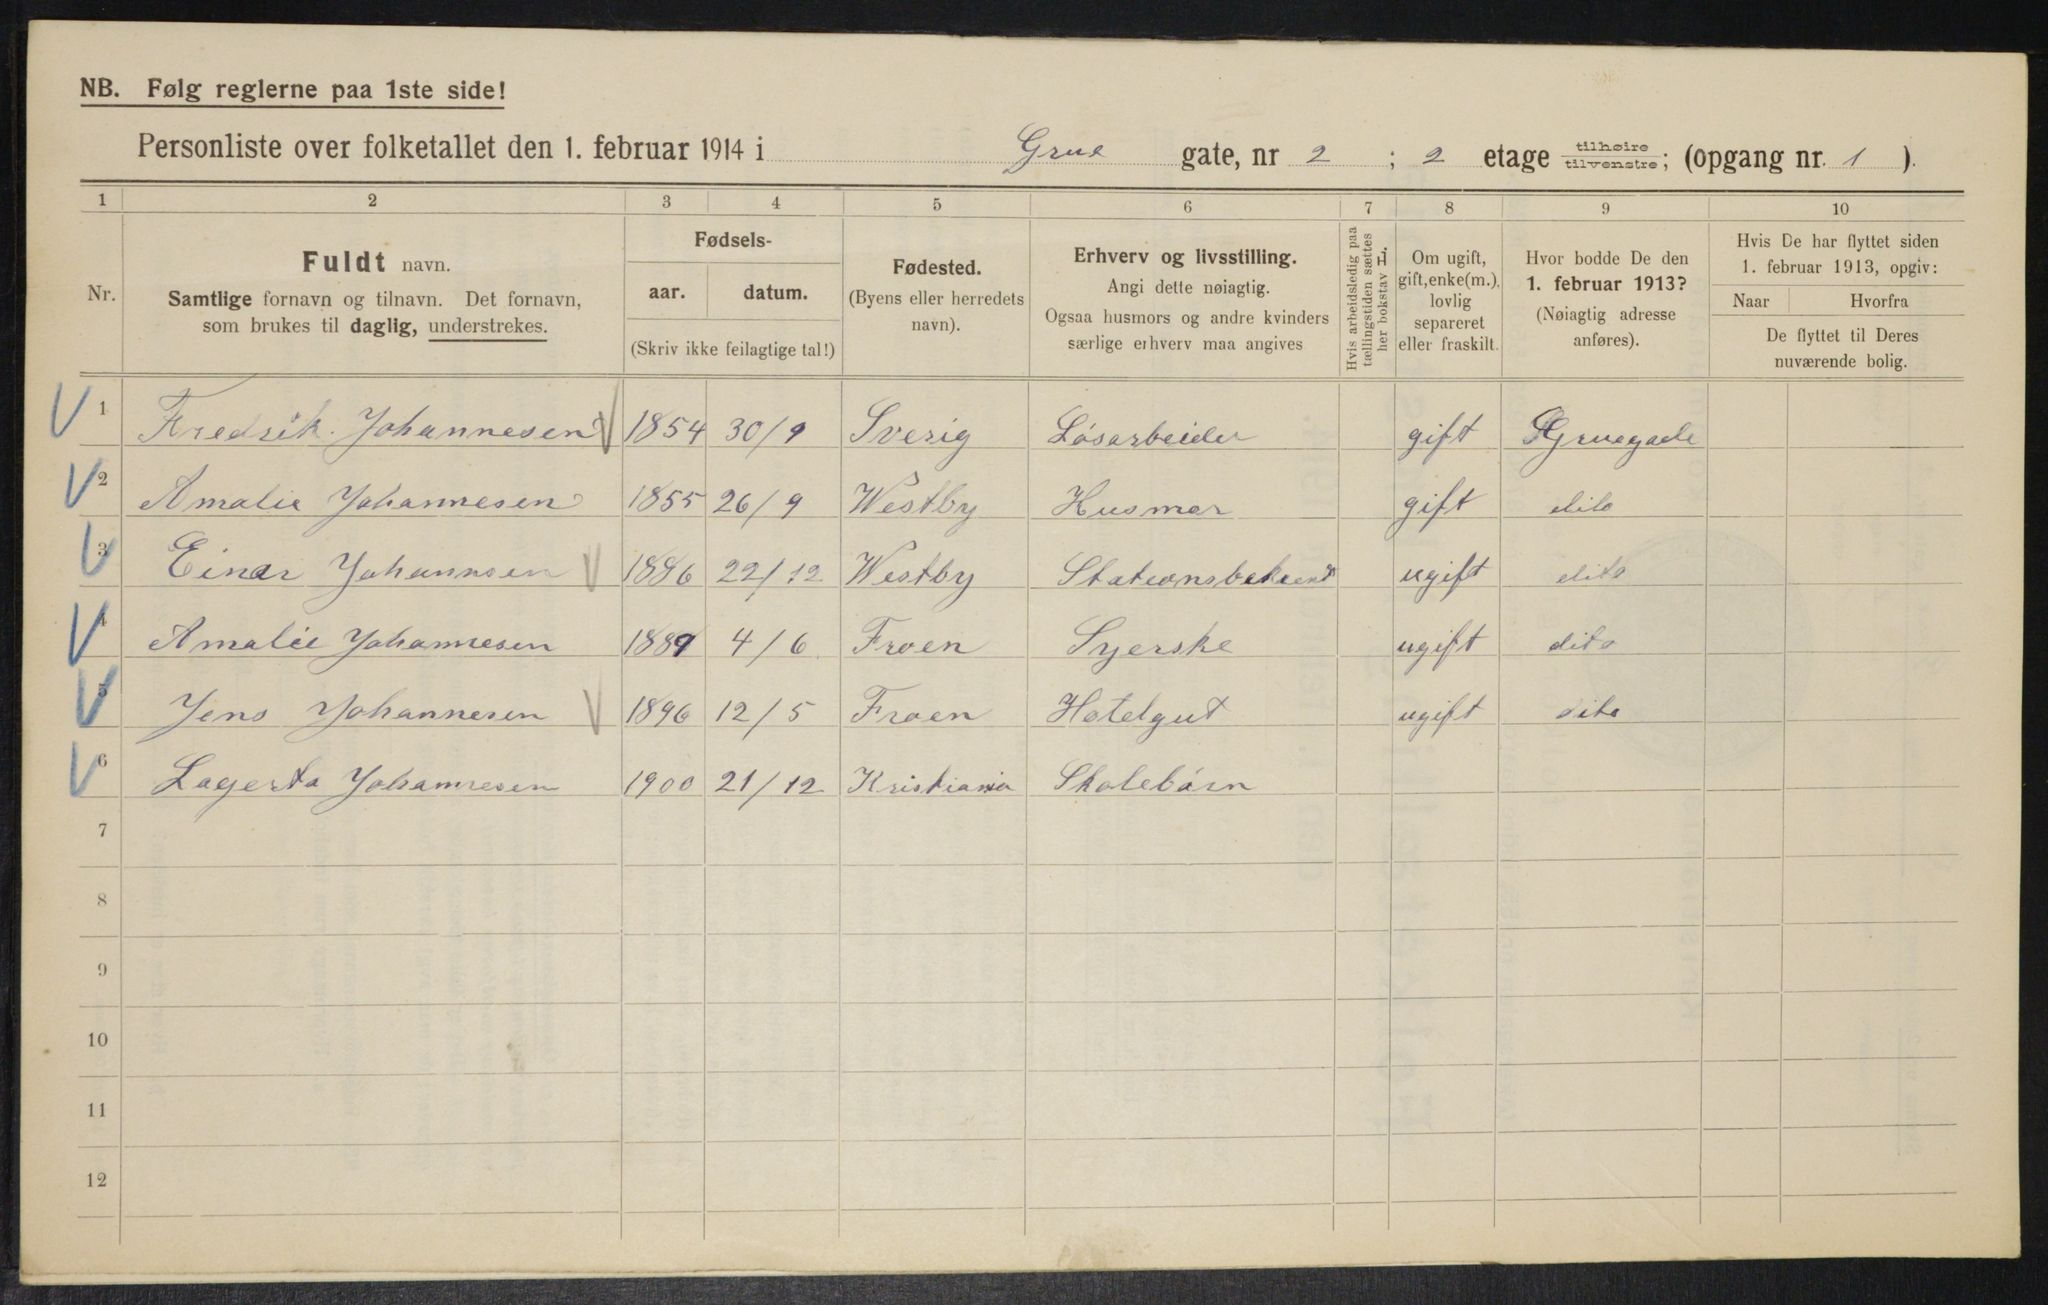 NB. Følg reglerne paa 1ste side!
Personliste over folketallet den 1. februar 1914 i Grue gate, nr 2 ; 2 etage tilhøire/tilvenstre; (opgang nr. 1 ).
1 2 3 4 5 6 7 8 9 10
Nr.
Fuldt navn.
Samtlige fornavn og tilnavn. Det fornavn,
som brukes til daglig, understrekes.
Fødsels-
aar. datum.
(Skriv ikke feilagtige tal!)
Fødested.
(Byens eller herredets
navn).
Erhverv og livsstilling.
Angi dette nøiagtig.
Ogsaa husmors og andre kvinders
særlige erhverv maa angives
Hvis arbeidsledig paa
tællingstiden sættes
her bokstav L.
Om ugift,
gift, enke(m.),
lovlig
separeret
eller fraskilt.
Hvor bodde De den
1. februar 1913?
(Nøiagtig adresse
anføres).
Hvis De har flyttet siden
1. februar 1913, opgiv:
Naar Hvorfra
De flyttet til Deres
nuværende bolig.
1 Fredrik Johannesen 1854 30/9 Sverig Løsarbeider gift Gruegade
2 Amalie Johannesen 1855 26/9 Westby Husmor gift dito
3 Einar Johannsen 1886 22/12 Westby ugift dito
4 Amalie Johannesen 1889 4/6 Froen Syerske ugift dito
5 Jens Johannesen 1896 12/5 Froen Hotelgut ugift dito
6 Lagerta Johannesen 1900 21/12 Kristiania Skolebørn
7
8
9
10
11
12